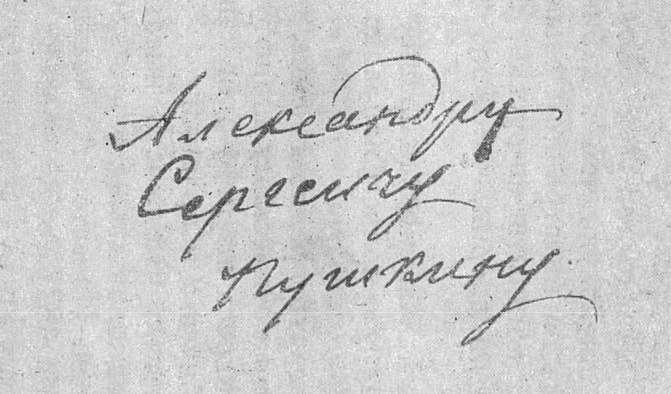 Александру
Сергеичу
Пушкину.